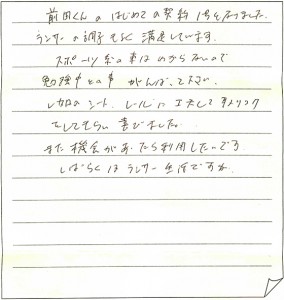 前田くんのはじめての契約1号となりました。
ランサーの調子もよく満足しています。
スポーツ系の車はわからないので
勉強中との事 がんばって下さい。
レカロのシート、レールに工夫して
をしてもらい喜びました。
また機会があったら利用したいです
しばらくはランサー生活ですね